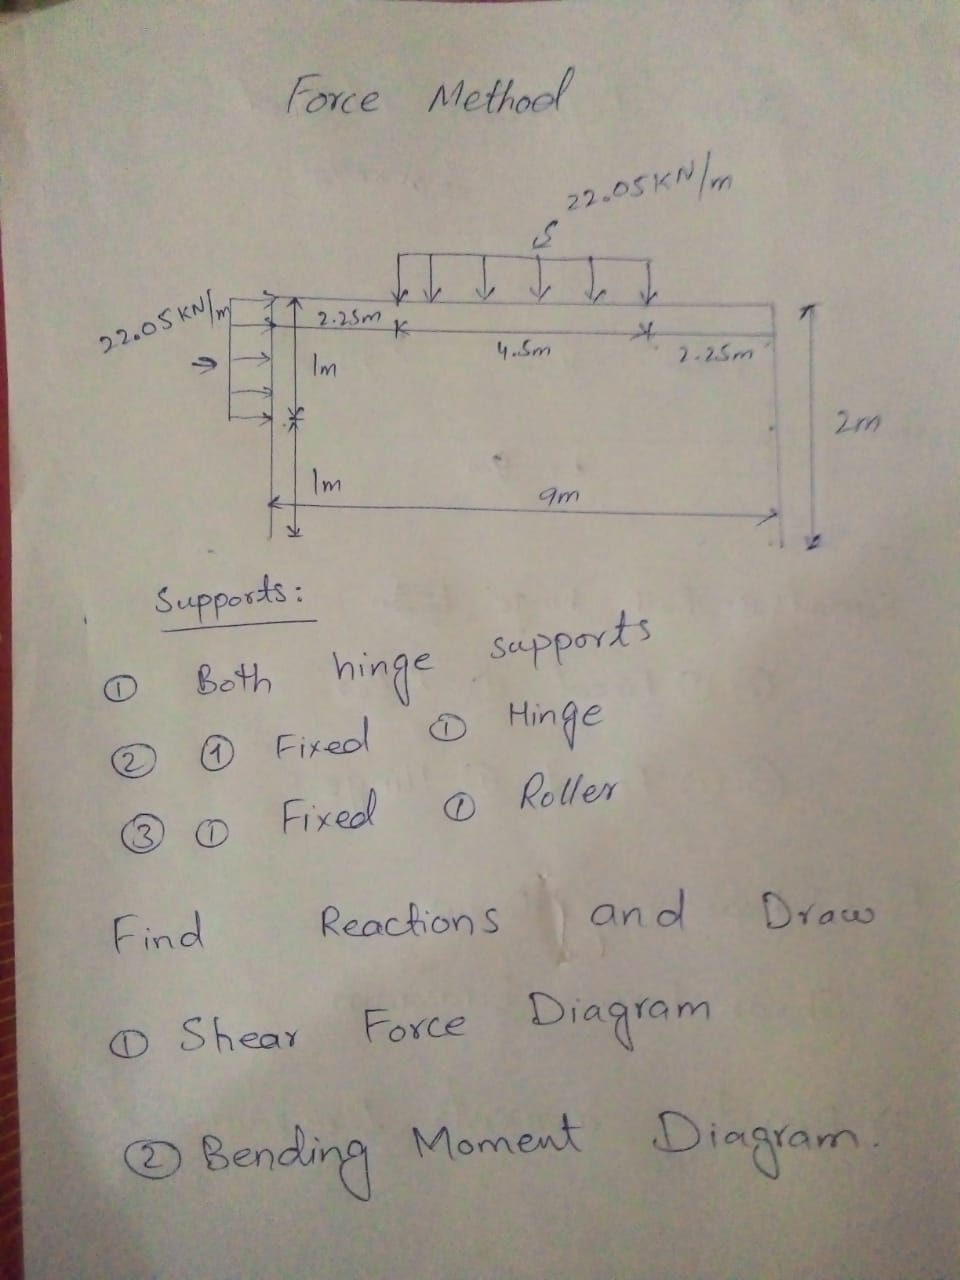 Force Method
22.05KN/m
22.05KN/m
2.25m
4.5m
2.25m
1m
2m
1m
9m
Supports:
① Both hinge supports
② ① Fixed ① Hinge
③ ① Fixed ① Roller
Find Reactions and Draw
① Shear Force Diagram
② Bending Moment Diagram.